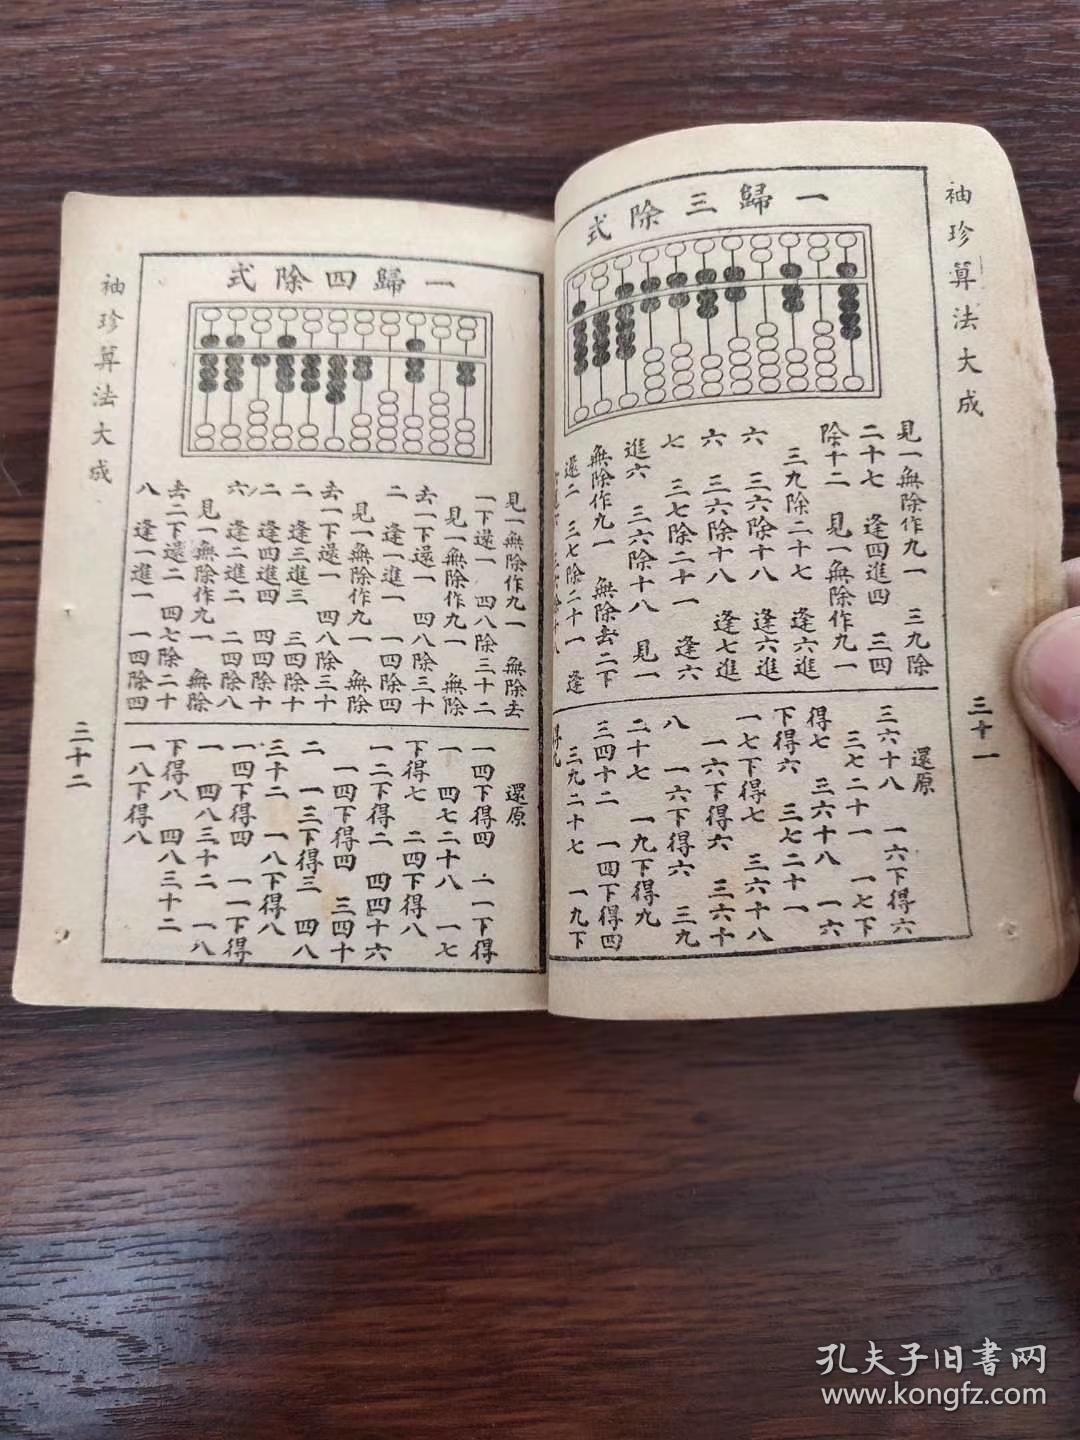 袖珍算法大成
三十一
一歸三除式
見一無除作九一 三九除
二十七 逢四進四 三四
除十二 見一無除作九一
三九除二十七 逢六進
六 三六除十八 逢六進
六 三六除十八 逢七進
七 三七除二十一 逢六
進六 三六除十八 見一
無除作九一 無除去二下
還二 三七除二十一 逢
還原
三六十八 一六下得六
三七二十一 一七下
得七 三六十八 一六
下得六 三七二十一
一七下得七 三六十八
一六下得六 三六十
八 一六下得六 三九
二十七 一九下得九
三四十二 一四下得四
三九二十七 一九下
得九
一歸四除式
見一無除作九一 無除去
一下還一 四八除三十二
見一無除作九一 無除
去一下還一 四八除三十
二 逢一進一 一四除四
見一無除作九一 無除
去一下還一 四八除三十
二 逢三進三 三四除十
二 逢四進四 四四除十
六 逢二進二 二四除八
見一無除作九一 無除
去二下還二 四七除二十
八 逢一進一 一四除四
還原
一四下得四 一一下得
一 四七二十八 一七
下得七 二四下得八
一二下得二 四四十六
一四下得四 三四十
二 一三下得三 四八
三十二 一八下得八
一四下得四 一一下得
一 四八三十二 一八
下得八 四八三十二
一八下得八
袖珍算法大成
三十二
孔夫子旧書网
www.kongfz.com